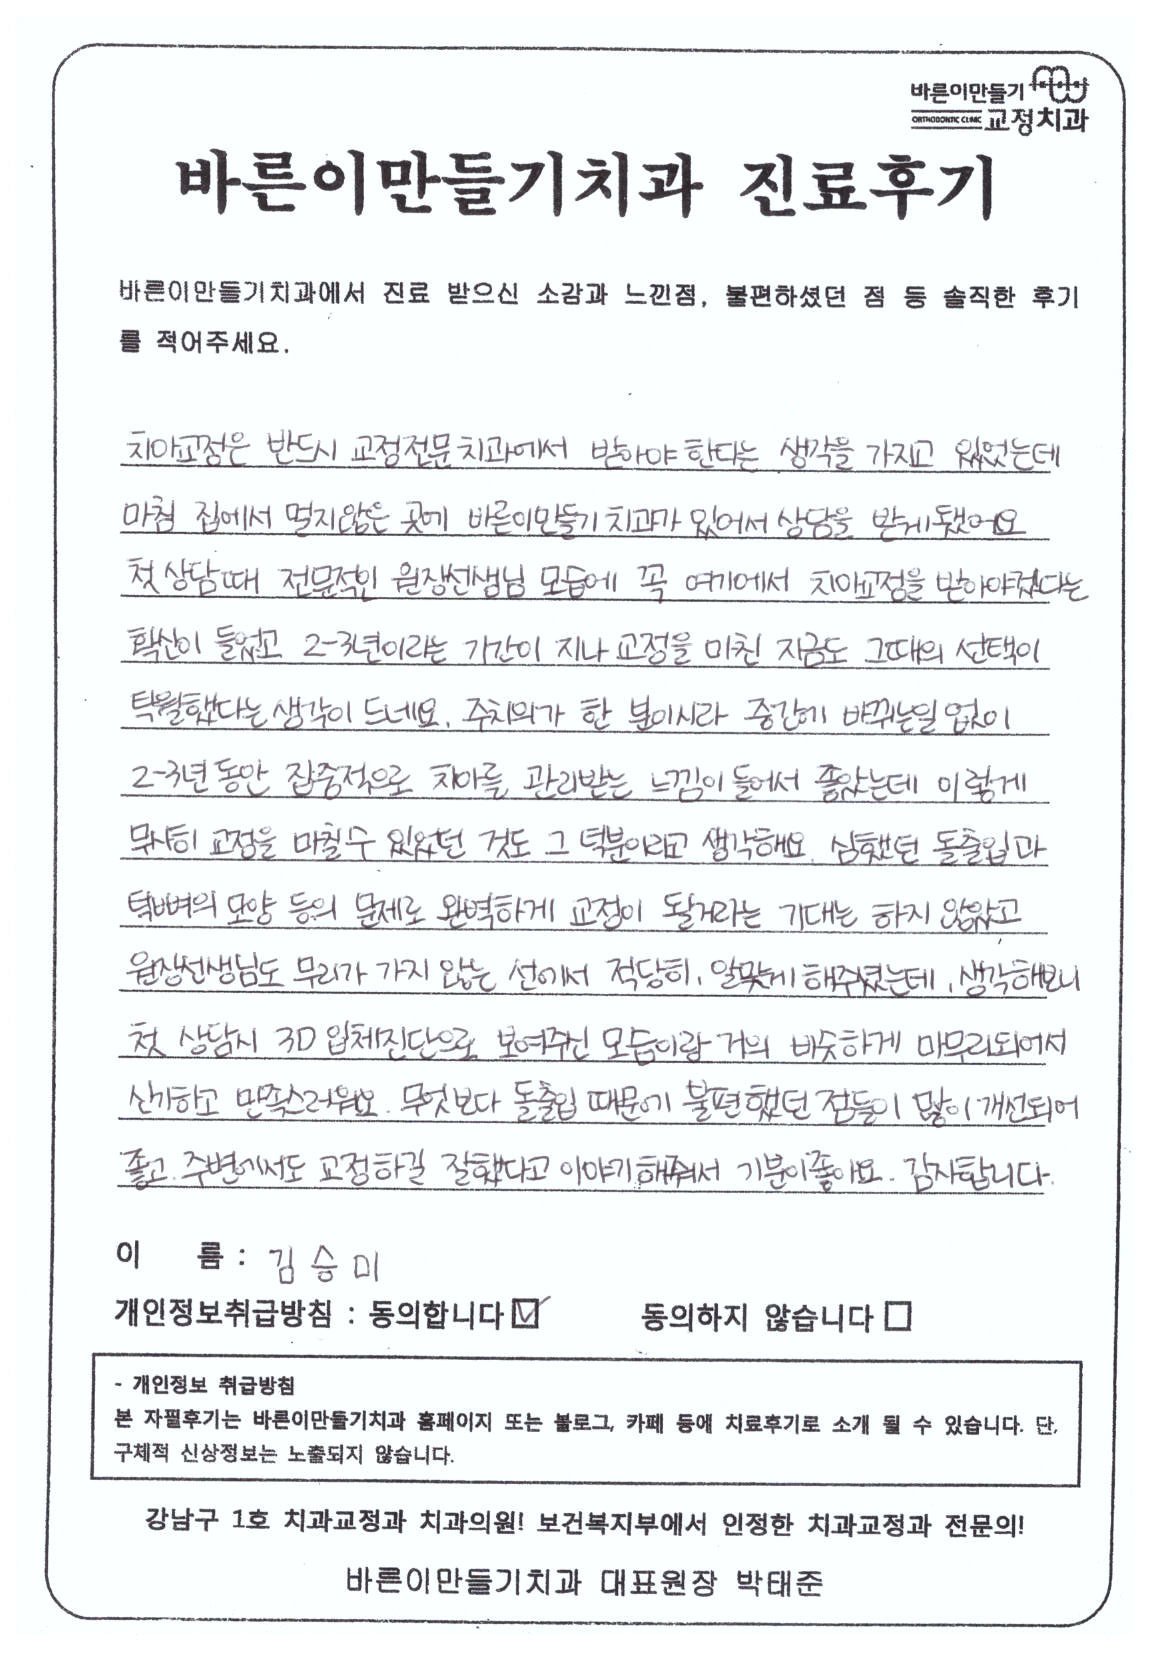 바른이만들기
ORTHODONTIC CLINIC 교정치과
바른이만들기치과 진료후기
바른이만들기치과에서 진료 받으신 소감과 느낀점, 불편하셨던 점 등 솔직한 후기
를 적어주세요.
치아교정은 반드시 교정전문치과에서 받아야 한다는 생각을 가지고 있었는데
마침 집에서 멀지않은 곳에 바른이만들기치과가 있어서 상담을 받게됐어요
첫 상담때 전문적인 원장선생님 모습에 꼭 여기에서 치아교정을 받아야겠다는
확신이 들었고 2-3년이라는 기간이 지나 교정을 마친 지금도 그때의 선택이
탁월했다는 생각이 드네요. 주치의가 한 분이시라 중간에 바뀌는일 없이
2-3년 동안 집중적으로 치아를 관리받는 느낌이 들어서 좋았는데 이렇게
무사히 교정을 마칠수 있었던 것도 그 덕분이라고 생각해요. 심했던 돌출입과
턱뼈의 모양 등의 문제로 완벽하게 교정이 될거라는 기대는 하지 않았고
원장선생님도 무리가 가지 않는 선에서 적당히, 알맞게 해주셨는데, 생각해보니
첫 상담시 3D 입체진단으로 보여주신 모습이랑 거의 비슷하게 마무리되어서
신기하고 만족스러워요. 무엇보다 돌출입 때문에 불편했던 점들이 많이개선되어
좋고 주변에서도 교정하길 잘했다고 이야기해줘서 기분이좋아요. 감사합니다.
이 름 : 김승미
개인정보취급방침 : 동의합니다☑ 동의하지 않습니다☐
- 개인정보 취급방침
본 자필후기는 바른이만들기치과 홈페이지 또는 블로그, 카페 등에 치료후기로 소개 될 수 있습니다. 단,
구체적 신상정보는 노출되지 않습니다.
강남구 1호 치과교정과 치과의원! 보건복지부에서 인정한 치과교정과 전문의!
바른이만들기치과 대표원장 박태준